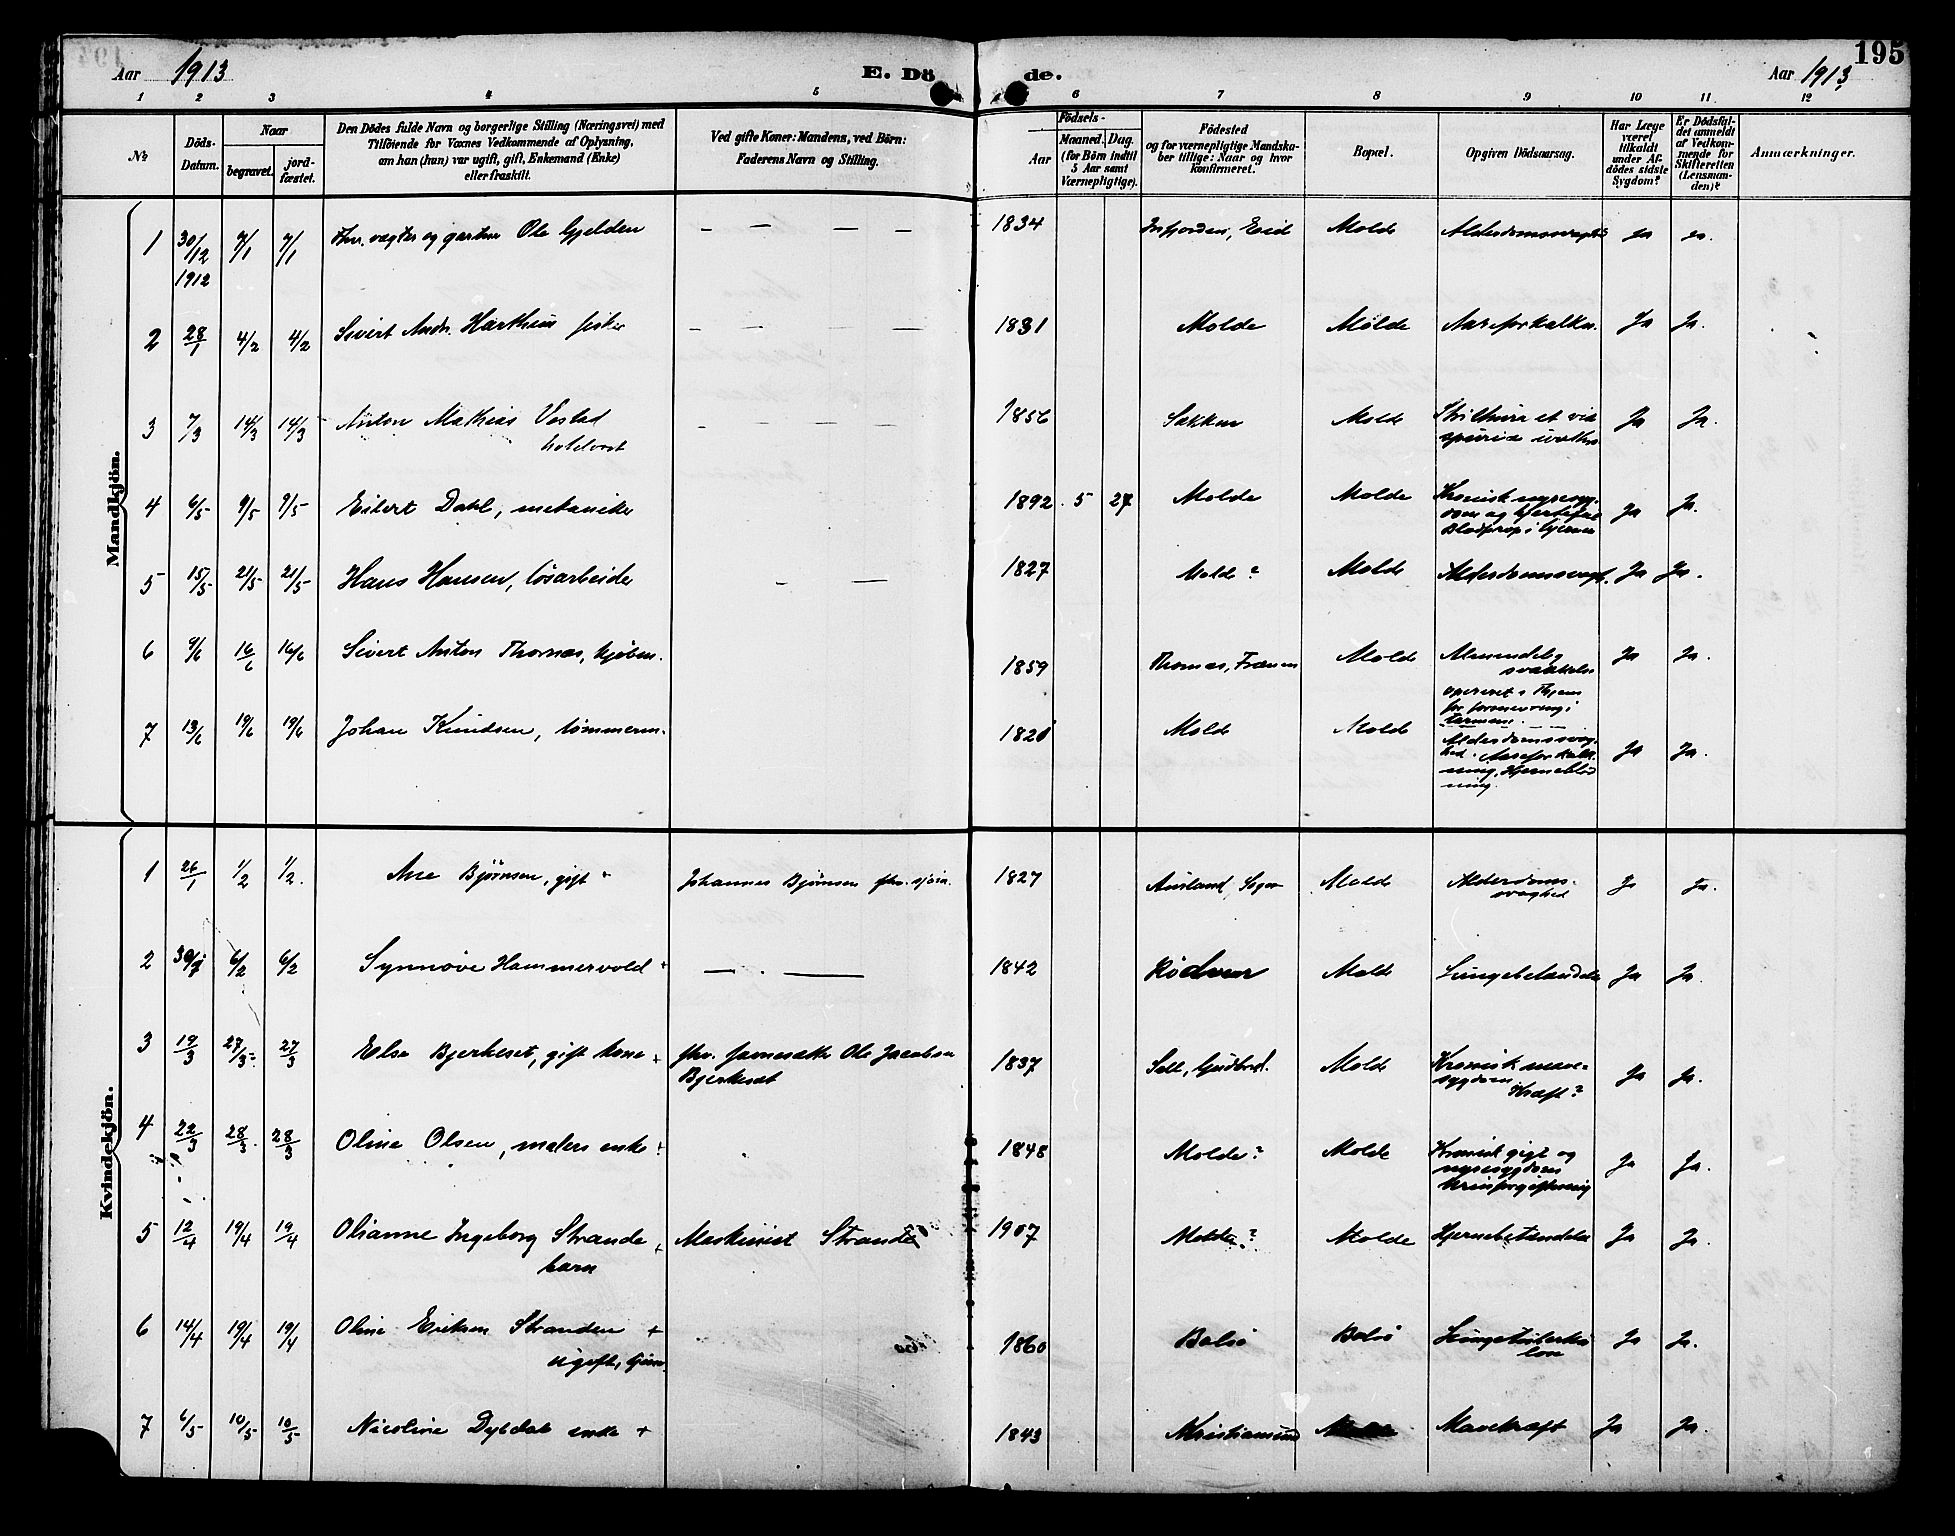 195
Aar 1913
E. Dö
de.
Aar 1913
1 2 3 4 5 6 7 8 9 10 11 12
No
Döds-
Datum.
Naar
begravet.
jord-
fæstet.
Den Dödes fulde Navn og borgerlige Stilling (Næringsvei) med
Tilföiende for Voxnes Vedkommende af Oplysning,
om han (hun) var ugift, gift, Enkemand (Enke)
eller fraskilt.
Ved gifte Koner: Mandens, ved Börn:
Faderens Navn og Stilling.
Födsels-
Aar
Maaned. Dag.
(for Börn indtil
5 Aar samt
Værnepligtige).
Födested
og for værnepligtige Mandska-
ber tillige: Naar og hvor
konfirmeret.
Bopæl.
Opgiven Dödsaarsag.
Har Læge
været
tilkaldt
under Af-
dödes sidste
Sygdom?
Er Dödsfal-
det anmeldt
af Vedkom-
mende for
Skifteretten
(Lensman-
den)?
Anmærkninger.
Mandkjön.
1 30/12 1912 7/1 7/1 fhv. vægter og gartner Ole Gjelden — — — — 1834 Isfjorden, Eid Molde Ja Ja.
2 28/1 4/2 4/2 Sivert Andr. Harthun fisker — — — 1831 Molde Molde Aareforkalkn. Ja Ja.
3 7/3 14/3 14/3 Anton Mathias Vestad
— — — — 1856 Sekken Molde Ja Ja.
4 6/5 9/5 9/5 Eilert Dahl, mekaniker 1892 5 27 Molde Molde Kronisk nyresyg-
dom og hjertefeil
Blodprop i hjernen Ja Ja.
5 15/5 21/5 21/5 Hans Hansen, løsarbeider — — 1827 Molde? Molde Alderdomssvagh. Ja Ja.
6 9/6 16/6 16/6 Sivert Anton Thornæs, kjøbm. 1859 Thornæs, Fræna Molde Almindelig
svækkelse
opereret i Thjem
for forsnevring i
tarmene. Ja Ja.
7 13/6 19/6 19/6 Johan Knudsen, tømmerm. 1820 Molde Molde Alderdomssvag-
hed. Aareforkalk-
ning, Hjerneblød
ning. Ja Ja.
Kvindekjön.
1 26/1 1/2 1/2. Ane Bjørnsen, gift + Johannes Bjørnsen fhv. 1827 Aurland, Sogn Molde Alderdoms-
svaghed Ja Ja.
2 30/1 6/2 6/2 Synnøve Hammervold + — — 1842 Rødven Molde Lungebetændelse Ja Ja.
3 19/3 27/3 27/3 Else Bjerkeset, gift kone + fhv. Ole Jacobsen
Bjerkeset 1837 Sell, Gudbrd. Molde Kronisk mave-
sygdom
Kræft? Ja Ja.
4 22/3 28/3. 28/3 Oline Olsen, malers enke + 1848 Molde? Molde Kronisk gigt og
nyresygdom
Urinforgiftning Ja Ja.
5 12/4 19/4 19/4 Olianne Ingeborg Strande +
barn Maskinist Strande 1907 Molde? Molde Hjernebetændelse Ja Ja.
6 14/4 19/4 19/4 Oline Eriksen Stranden +
ugift, 1860 Bolsø Bolsø Lungetuberku
lose Ja Ja.
7 6/5 10/5 10/5 Nicoline Dyrdal enke + 1843 Kristiansund Mavekræft Ja Ja.